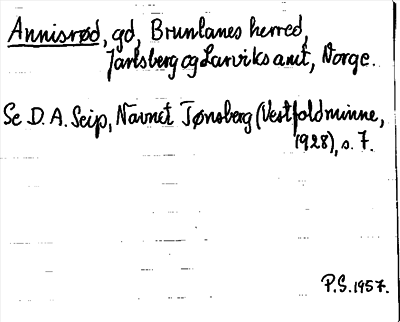 Annisrød, gd, Brunlanes herred,
Jarlsberg og Larviks amt, Norge.
Se D. A. Seip, Navnet Tønsberg (Vestfoldminne,
1928), s. 7.
P.S. 1957.